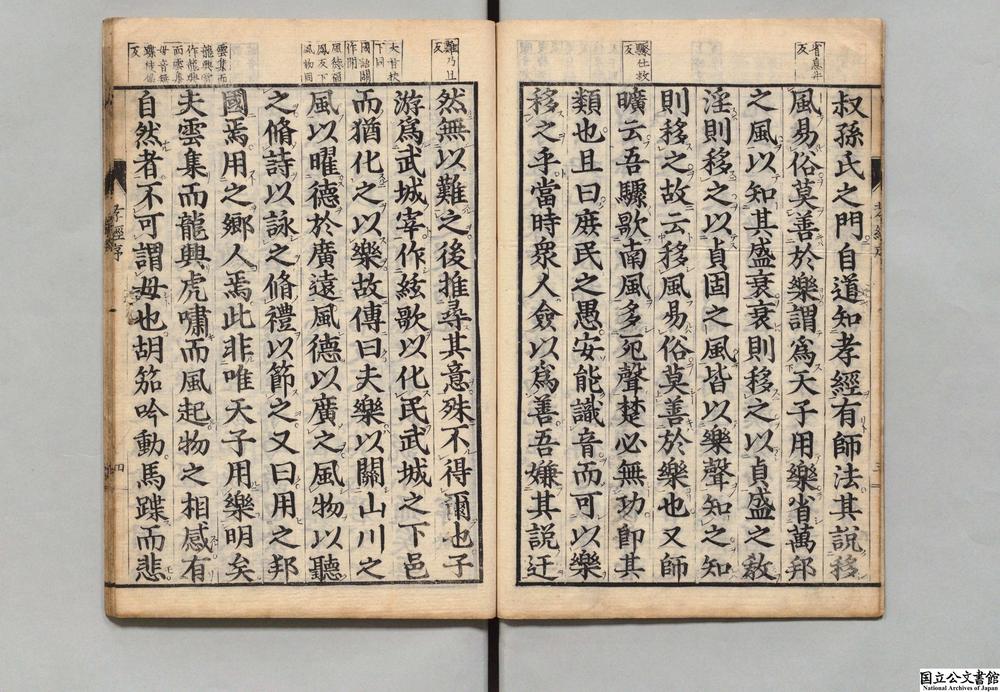 叔孫氏之門自道知孝經有師法其說移
風易俗莫善於樂謂爲天子用樂省萬邦
之風以知其盛衰衰則移之以貞盛之敎
淫則移之以貞固之風皆以樂聲知之知
則移之故云移風易俗莫善於樂也又師
曠云吾驟歌南風多死聲楚必無功卽其
類也且曰庶民之愚安能識音而可以樂
移之乎當時衆人僉以爲善吾嫌其說迂
然無以難之後推尋其意殊不得爾也子
游爲武城宰作絃歌以化民武城之下邑
而猶化之以樂故傳曰夫樂以關山川之
風以曜德於廣遠風德以廣之風物以聽
之脩詩以詠之脩禮以節之又曰用之邦
國焉用之鄉人焉此非唯天子用樂明矣
夫雲集而龍興虎嘯而風起物之相感有
自然者不可謂毋也胡笳吟動馬蹀而悲
省息井
反
驟仕救
反
難乃旦
反
孝經序
三
孝經序
四
国立公文書館
National Archives of Japan